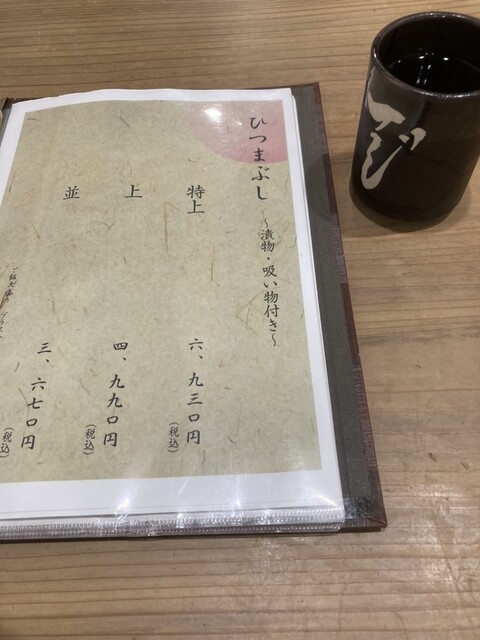 ひつまぶし
～漬物・吸い物付き～
特上
六、九三〇円
(税込)
上
四、九九〇円
(税込)
並
三、六七〇円
(税込)